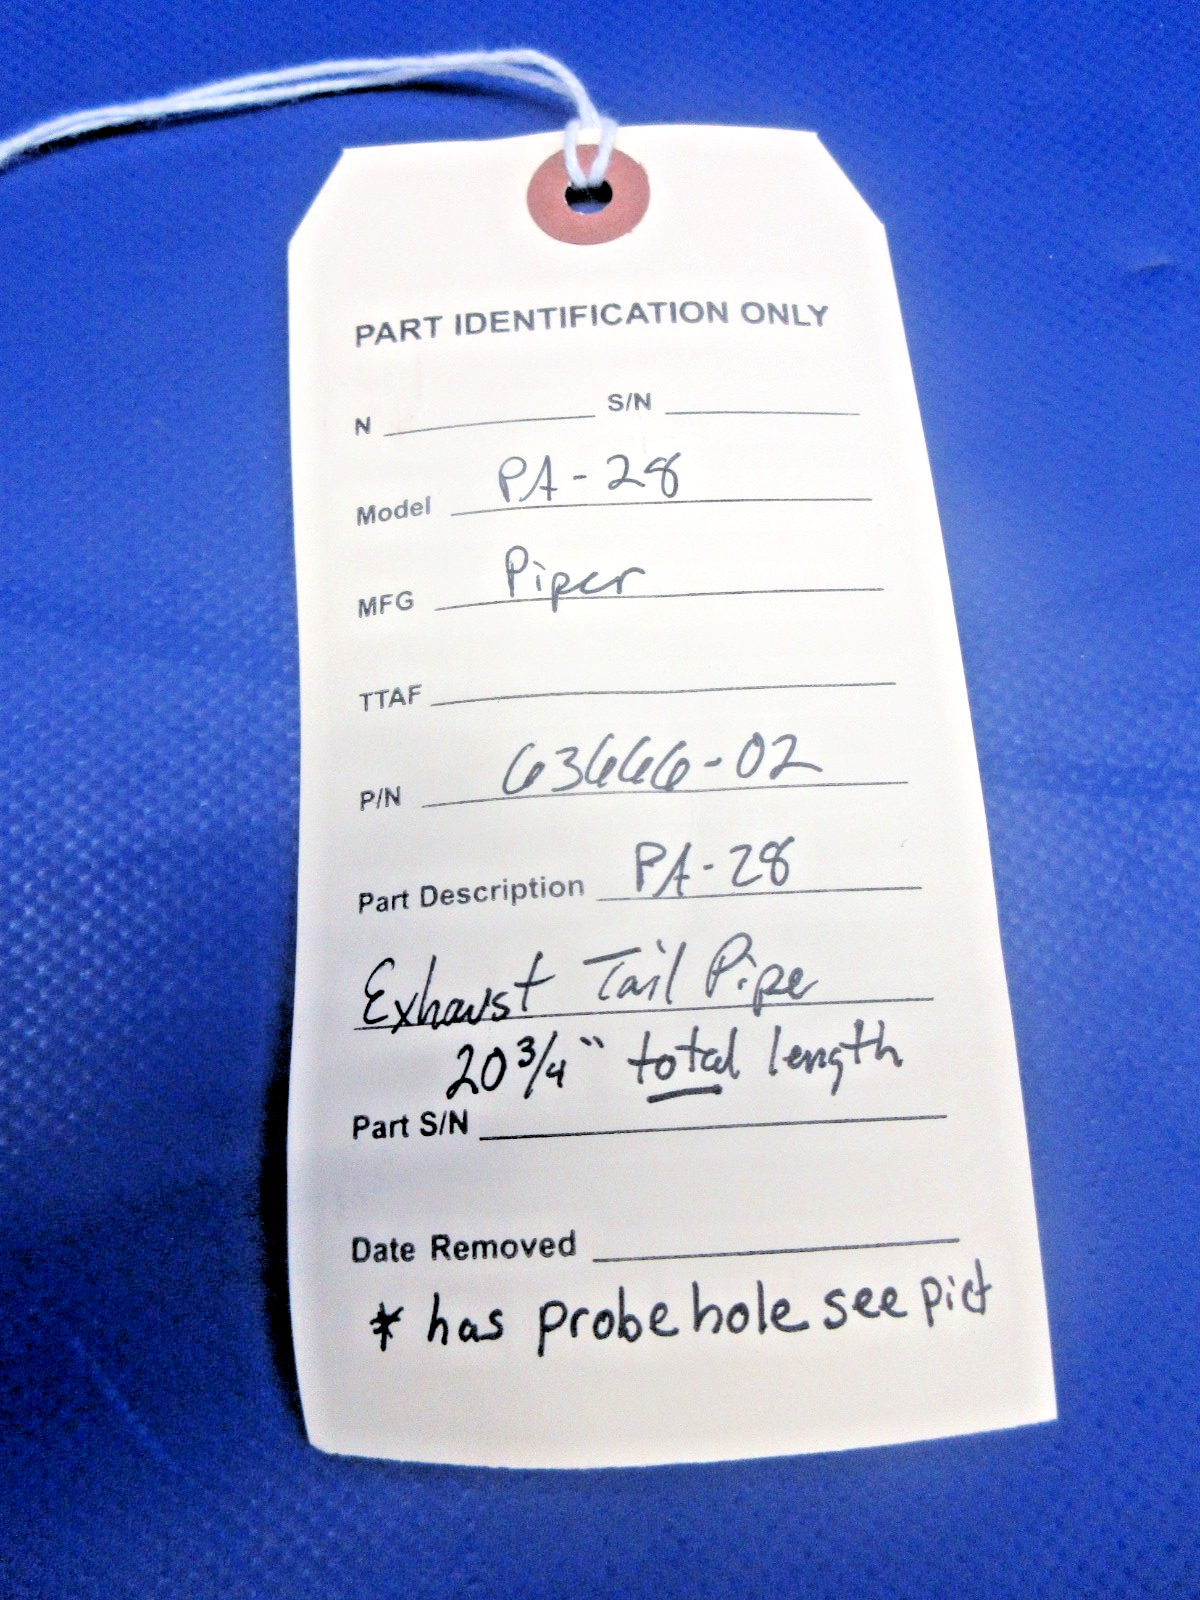 PART IDENTIFICATION ONLY
N S/N
Model PA-28
MFG Piper
TTAF
P/N 63666-02
Part Description PA-28
Exhaust Tail Pipe
20 3/4" total length
Part S/N
Date Removed
* has probe hole see pict